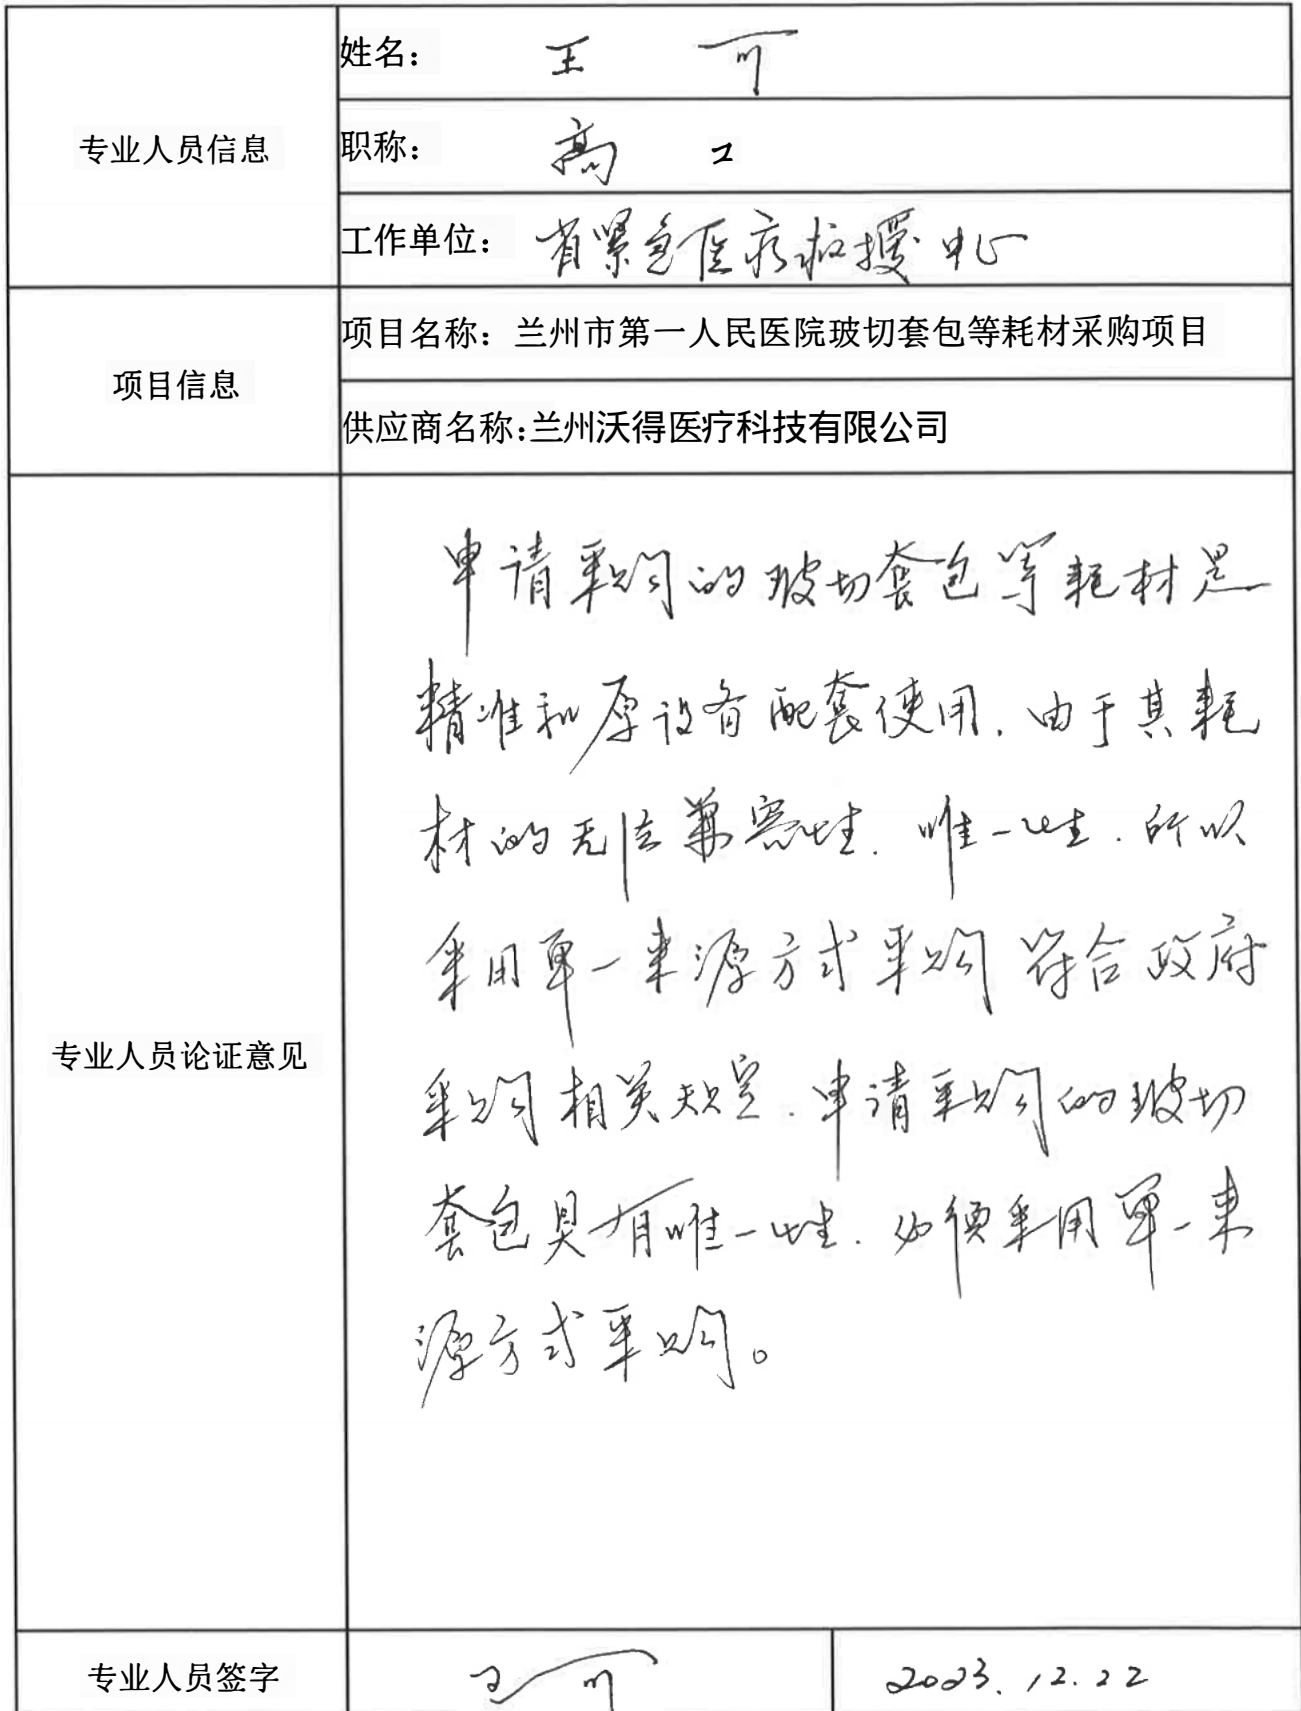 专业人员信息
姓名： 王 可
职称： 高 工
工作单位： 省紧急医疗救援中心
项目信息
项目名称：兰州市第一人民医院玻切套包等耗材采购项目
供应商名称：兰州沃得医疗科技有限公司
专业人员论证意见
申请采购的玻切套包等耗材是
精准和原设备配套使用．由于其耗
材的无法兼容性．唯一性．所以
采用单一来源方式采购符合政府
采购相关规定．申请采购的玻切
套包具有唯一性．必须采用单一来
源方式采购。
专业人员签字 王可 2023.12.22